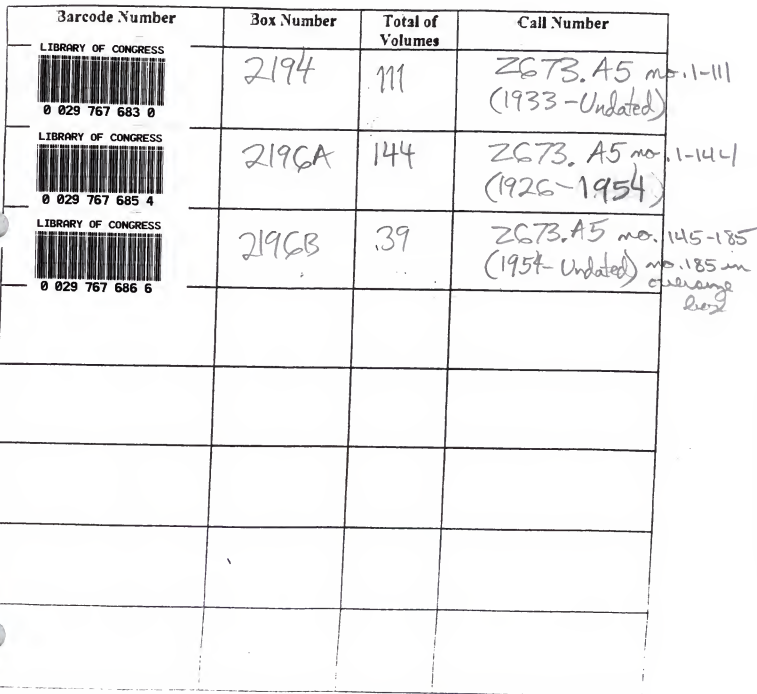 Barcode Number Box Number Total of Volumes Call Number
LIBRARY OF CONGRESS
0 029 767 683 0
2194 111 Z673.A5 no.1-111
(1933-Undated)
LIBRARY OF CONGRESS
0 029 767 685 4
2196A 144 Z673.A5 no.1-144
(1926-1954)
LIBRARY OF CONGRESS
0 029 767 686 6
2196B 39 Z673.A5 no.145-185
(1954-Undated) no.185 in
oversize
box